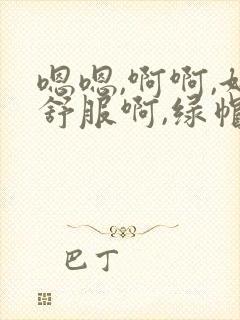 嗯嗯,啊啊,好
舒服啊,绿帽
巴丁